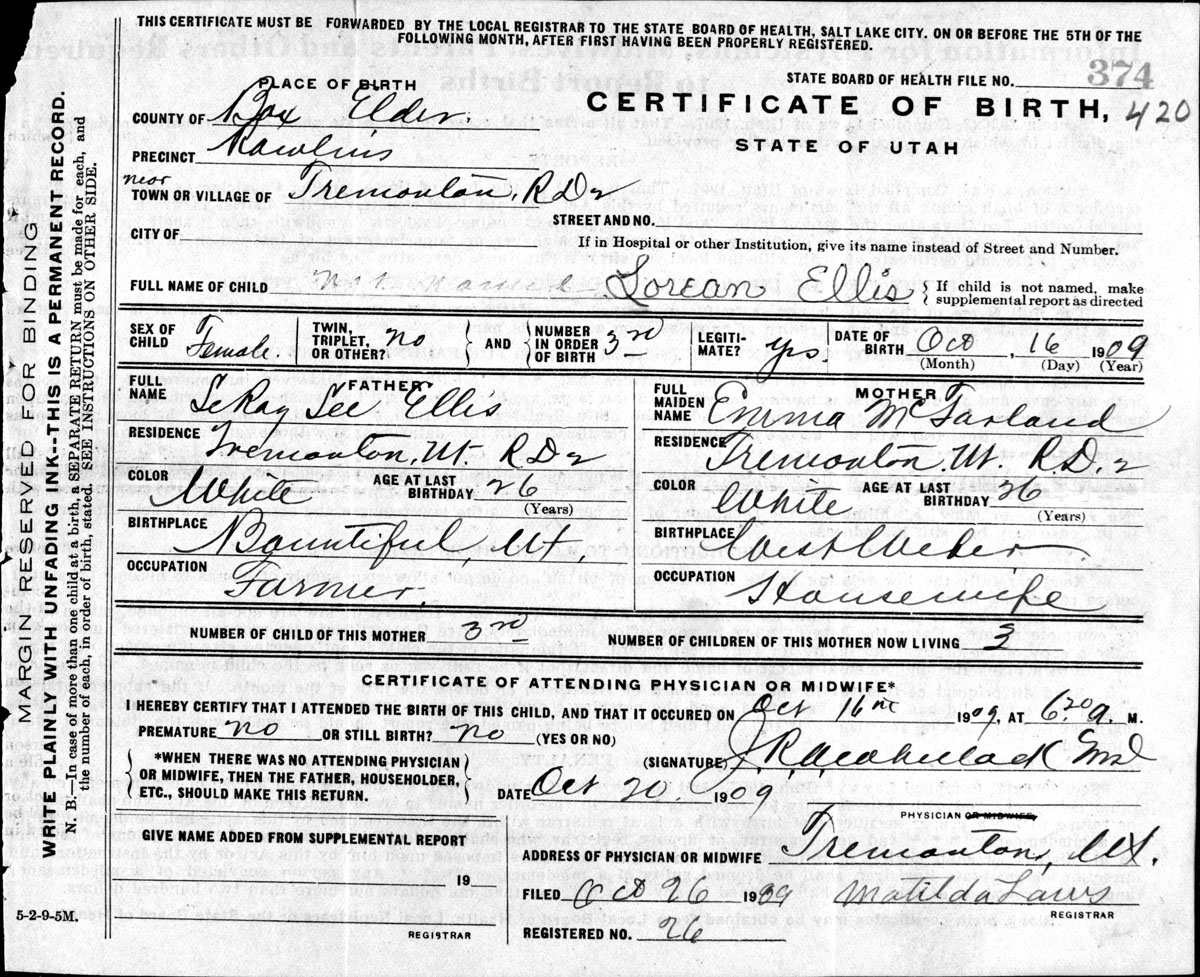 THIS CERTIFICATE MUST BE FORWARDED BY THE LOCAL REGISTRAR TO THE STATE BOARD OF HEALTH, SALT LAKE CITY. ON OR BEFORE THE 5TH OF THE
FOLLOWING MONTH, AFTER FIRST HAVING BEEN PROPERLY REGISTERED.
MARGIN RESERVED FOR BINDING
WRITE PLAINLY WITH UNFADING INK--THIS IS A PERMANENT RECORD.
N. B.—In case of more than one child at a birth, a SEPARATE RETURN must be made for each, and
the number of each, in order of birth, stated. SEE INSTRUCTIONS ON OTHER SIDE.
PLACE OF BIRTH
STATE BOARD OF HEALTH FILE NO. 374
COUNTY OF Box Elder.
CERTIFICATE OF BIRTH, 420
PRECINCT Rawlins
STATE OF UTAH
near
TOWN OR VILLAGE OF Tremonton, R D 2
STREET AND NO.
CITY OF
If in Hospital or other Institution, give its name instead of Street and Number.
FULL NAME OF CHILD Not named Lorean Ellis { If child is not named, make
supplemental report as directed
SEX OF CHILD Female. TWIN, TRIPLET, OR OTHER? no } AND { NUMBER IN ORDER OF BIRTH 3rd LEGITI- MATE? yes DATE OF BIRTH Oct, 16 1909
(Month) (Day) (Year)
FATHER MOTHER
FULL NAME LeRoy Lee Ellis FULL MAIDEN NAME Emma McFarland
RESIDENCE Tremonton, Ut. R D 2 RESIDENCE Tremonton, Ut. R.D. 2
COLOR White AGE AT LAST BIRTHDAY 26 COLOR White AGE AT LAST BIRTHDAY 26
(Years) (Years)
BIRTHPLACE Bountiful, Ut BIRTHPLACE West Weber
OCCUPATION Farmer. OCCUPATION Housewife
NUMBER OF CHILD OF THIS MOTHER 3rd NUMBER OF CHILDREN OF THIS MOTHER NOW LIVING 3
CERTIFICATE OF ATTENDING PHYSICIAN OR MIDWIFE*
I HEREBY CERTIFY THAT I ATTENDED THE BIRTH OF THIS CHILD, AND THAT IT OCCURED ON Oct 16 1909, AT 6.20 a. M.
PREMATURE no OR STILL BIRTH? no (YES OR NO)
(SIGNATURE) Md
{ *WHEN THERE WAS NO ATTENDING PHYSICIAN
OR MIDWIFE, THEN THE FATHER, HOUSEHOLDER,
ETC., SHOULD MAKE THIS RETURN. }
DATE Oct 20. 1909.
PHYSICIAN OR MIDWIFE
GIVE NAME ADDED FROM SUPPLEMENTAL REPORT
ADDRESS OF PHYSICIAN OR MIDWIFE Tremonton, Ut.
19
FILED Oct 26 1909 Matilda Laws
REGISTRAR
REGISTERED NO. 26
5-2-9-5M.
REGISTRAR